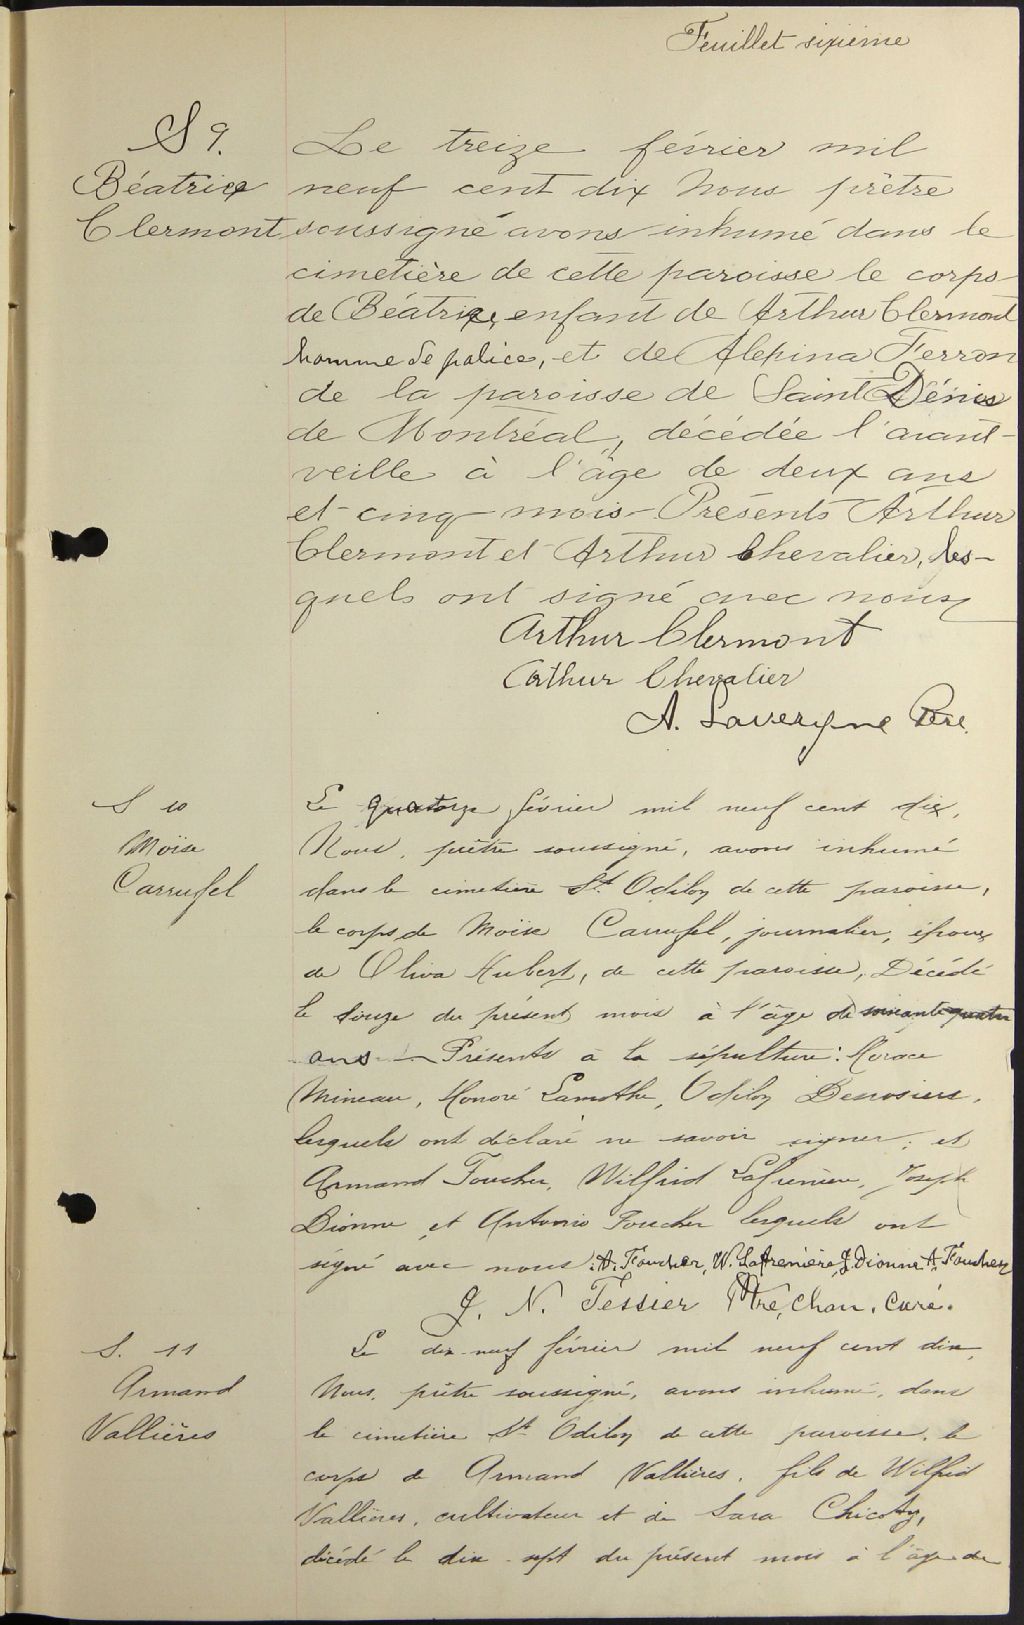 Feuillet sixième
S 9.
Béatrice
Clermont
Le treize février mil
neuf cent dix nous prêtre
soussigné avons inhumé dans le
cimetière de cette paroisse le corps
de Béatrice, enfant de Arthur Clermont
homme de police, et de Alexina Ferron
de la paroisse de Saint Dénis
de Montréal, décédée l'avant-
veille à l'âge de deux ans
et cinq mois - Présents Arthur
Clermont et Arthur Chevalier, les-
quels ont signé avec nous
Arthur Clermont
Arthur Chevalier
A. Lavergne Ptre.
S 10
Moïse
Carrufel
Le quatorze février mil neuf cent dix,
Nous, prêtre soussigné, avons inhumé
dans le cimetière St. Odilon de cette paroisse,
le corps de Moïse Carrufel, journalier, époux
de Oliva Hubert, de cette paroisse, Décédé
le douze du présent mois à l'âge de soixante quatre
ans - Présents à la sépulture: Horace
Mineau, Honoré Lamothe, Odilon Desrosiers,
lesquels ont déclaré ne savoir signer; et
Armand Foucher, Wilfrid Lafrenière, Joseph
Dionne, et Antonio Foucher lesquels ont
signé avec nous. A. Foucher, W. Lafrenière J. Dionne A. Foucher
J. N. Tessier Ptre, Chan. curé.
S. 11
Armand
Vallières
Le dix-neuf février mil neuf cent dix,
Nous, prêtre soussigné, avons inhumé, dans
le cimetière St. Odilon de cette paroisse, le
corps de Armand Vallières, fils de Wilfrid
Vallières, cultivateur et de Sara Chicoty,
décédé le dix-sept du présent mois à l'âge de